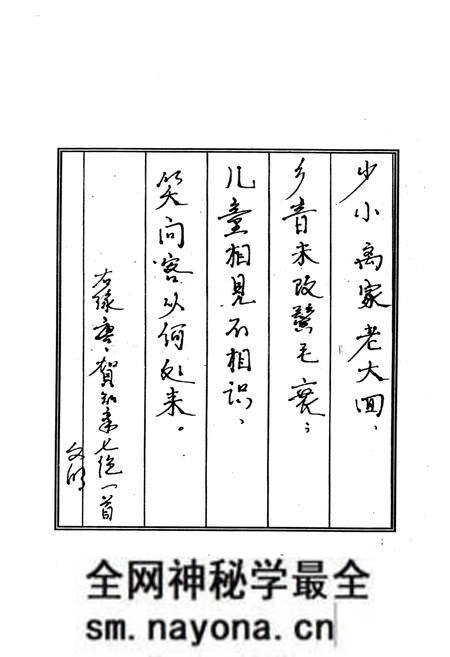 少小离家老大回，
乡音未改鬓毛衰；
儿童相見不相识，
笑问客从何处来。
右録唐·賀知章七绝一首
文明
全网神秘学最全
sm.nayona.cn